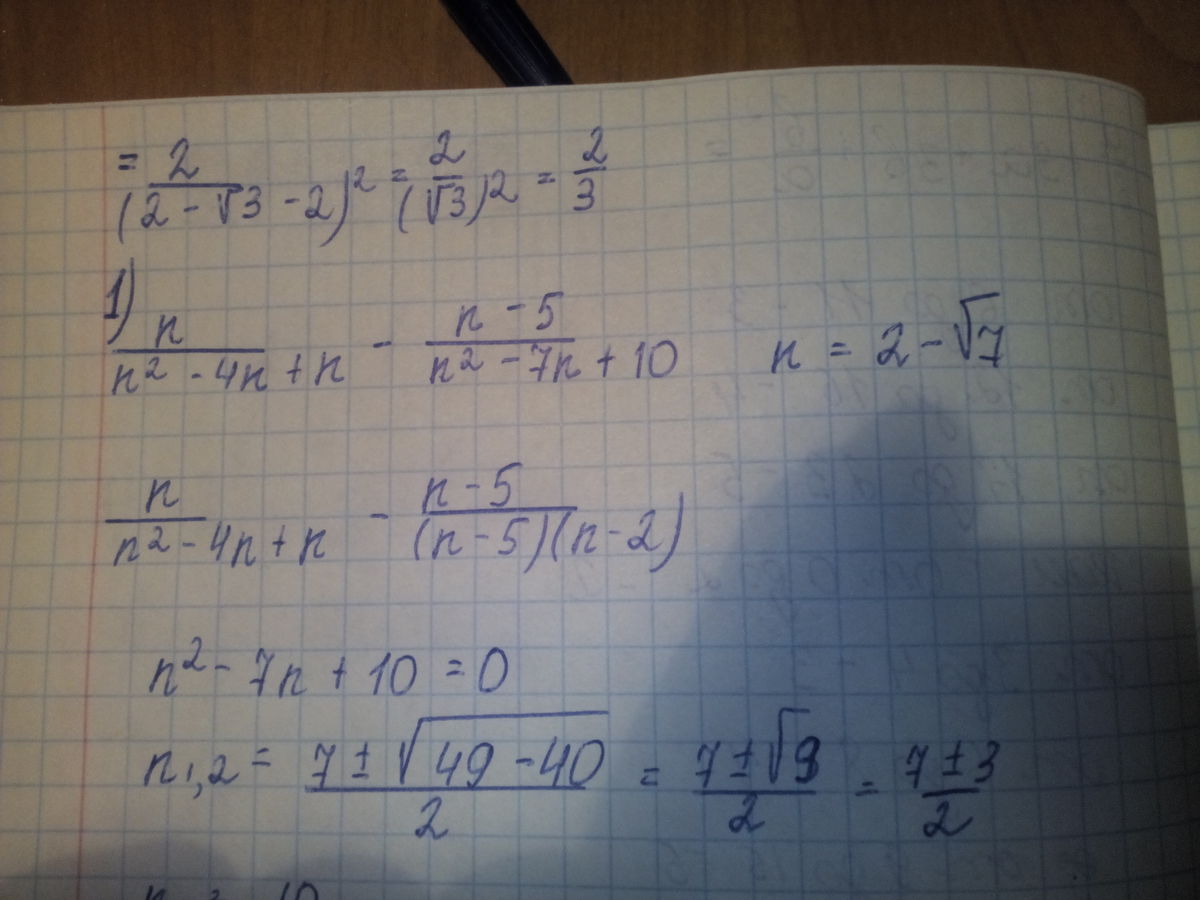 = 2/(2 - √3 - 2)² = 2/(√3)² = 2/3
1) n/(n² - 4n + n) - (n - 5)/(n² - 7n + 10) n = 2 - √7
n/(n² - 4n + n) - (n - 5)/((n - 5)(n - 2))
n² - 7n + 10 = 0
n1,2 = (7 ± √(49 - 40))/2 = (7 ± √9)/2 = (7 ± 3)/2